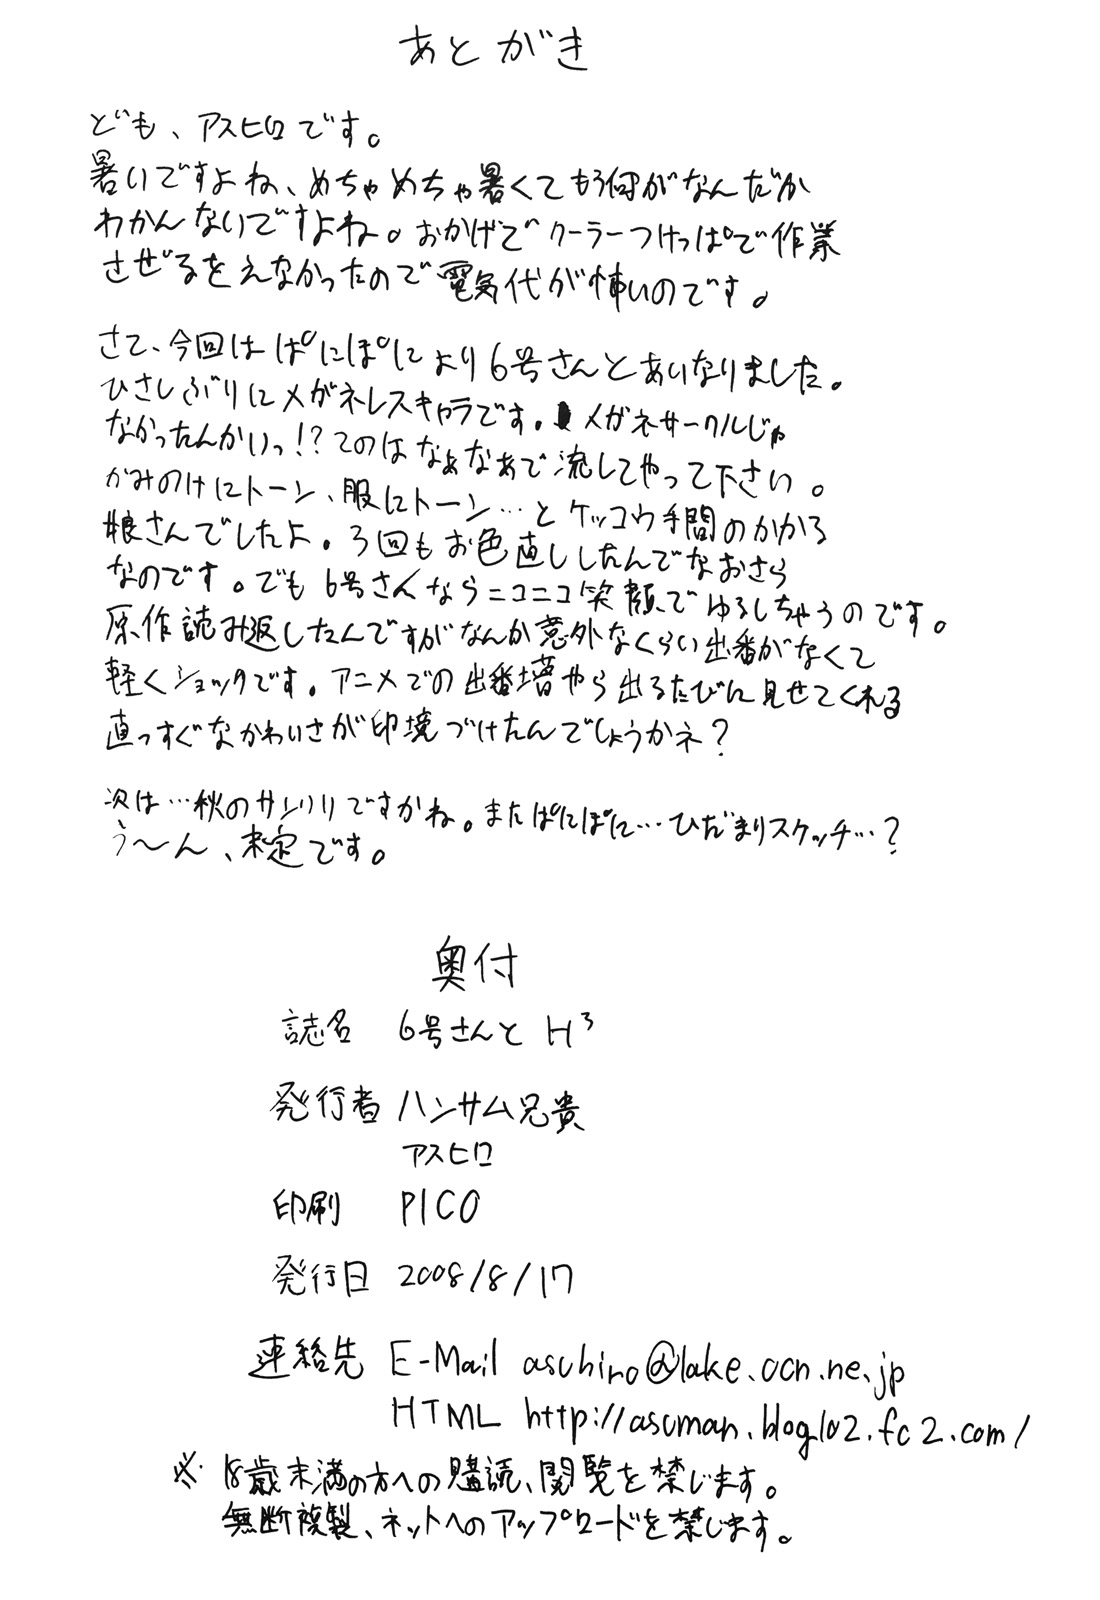 あとがき
ども、アスヒロです。
暑いですよね、めちゃめちゃ暑くてもう何がなんだか
わかんないですよね。おかげでクーラーつけっぱで作業
させ゛るをえなかったので電気代が怖いのです。
さて、今回はぱにぽにより6号さんとあいなりました。
ひさしぶりにメガネレスキャラです。メガネサークルじゃ
なかったんかいっ!?てのはなぁなあで流してやって下さい。
かみのけにトーン、服にトーン…とケッコウ手間のかかる
娘さんでしたよ。3回もお色直ししたんでなおさら
なのです。でも6号さんならニコニコ笑顔でゆるしちゃうのです。
原作読み返したんですがなんか意外なくらい出番がなくて
軽くショックです。アニメでの出番増やら出るたびに見せてくれる
直っすぐなかわいさが印境づけたんでしょうかネ?
次は…秋のサンクリですかね。またぱにぽに…ひだまりスケッチ…?
う〜ん、未定です。
奥付
誌名 6号さんとH³
発行者 ハンサム兄貴
アスヒロ
印刷 PICO
発行日 2008/8/17
連絡先 E-Mail asuhiro@lake.ocn.ne.jp
HTML http://asuman.blog102.fc2.com/
※18歳未満の方への購読、閲覧を禁じます。
無断複製、ネットへのアップロードを禁じます。